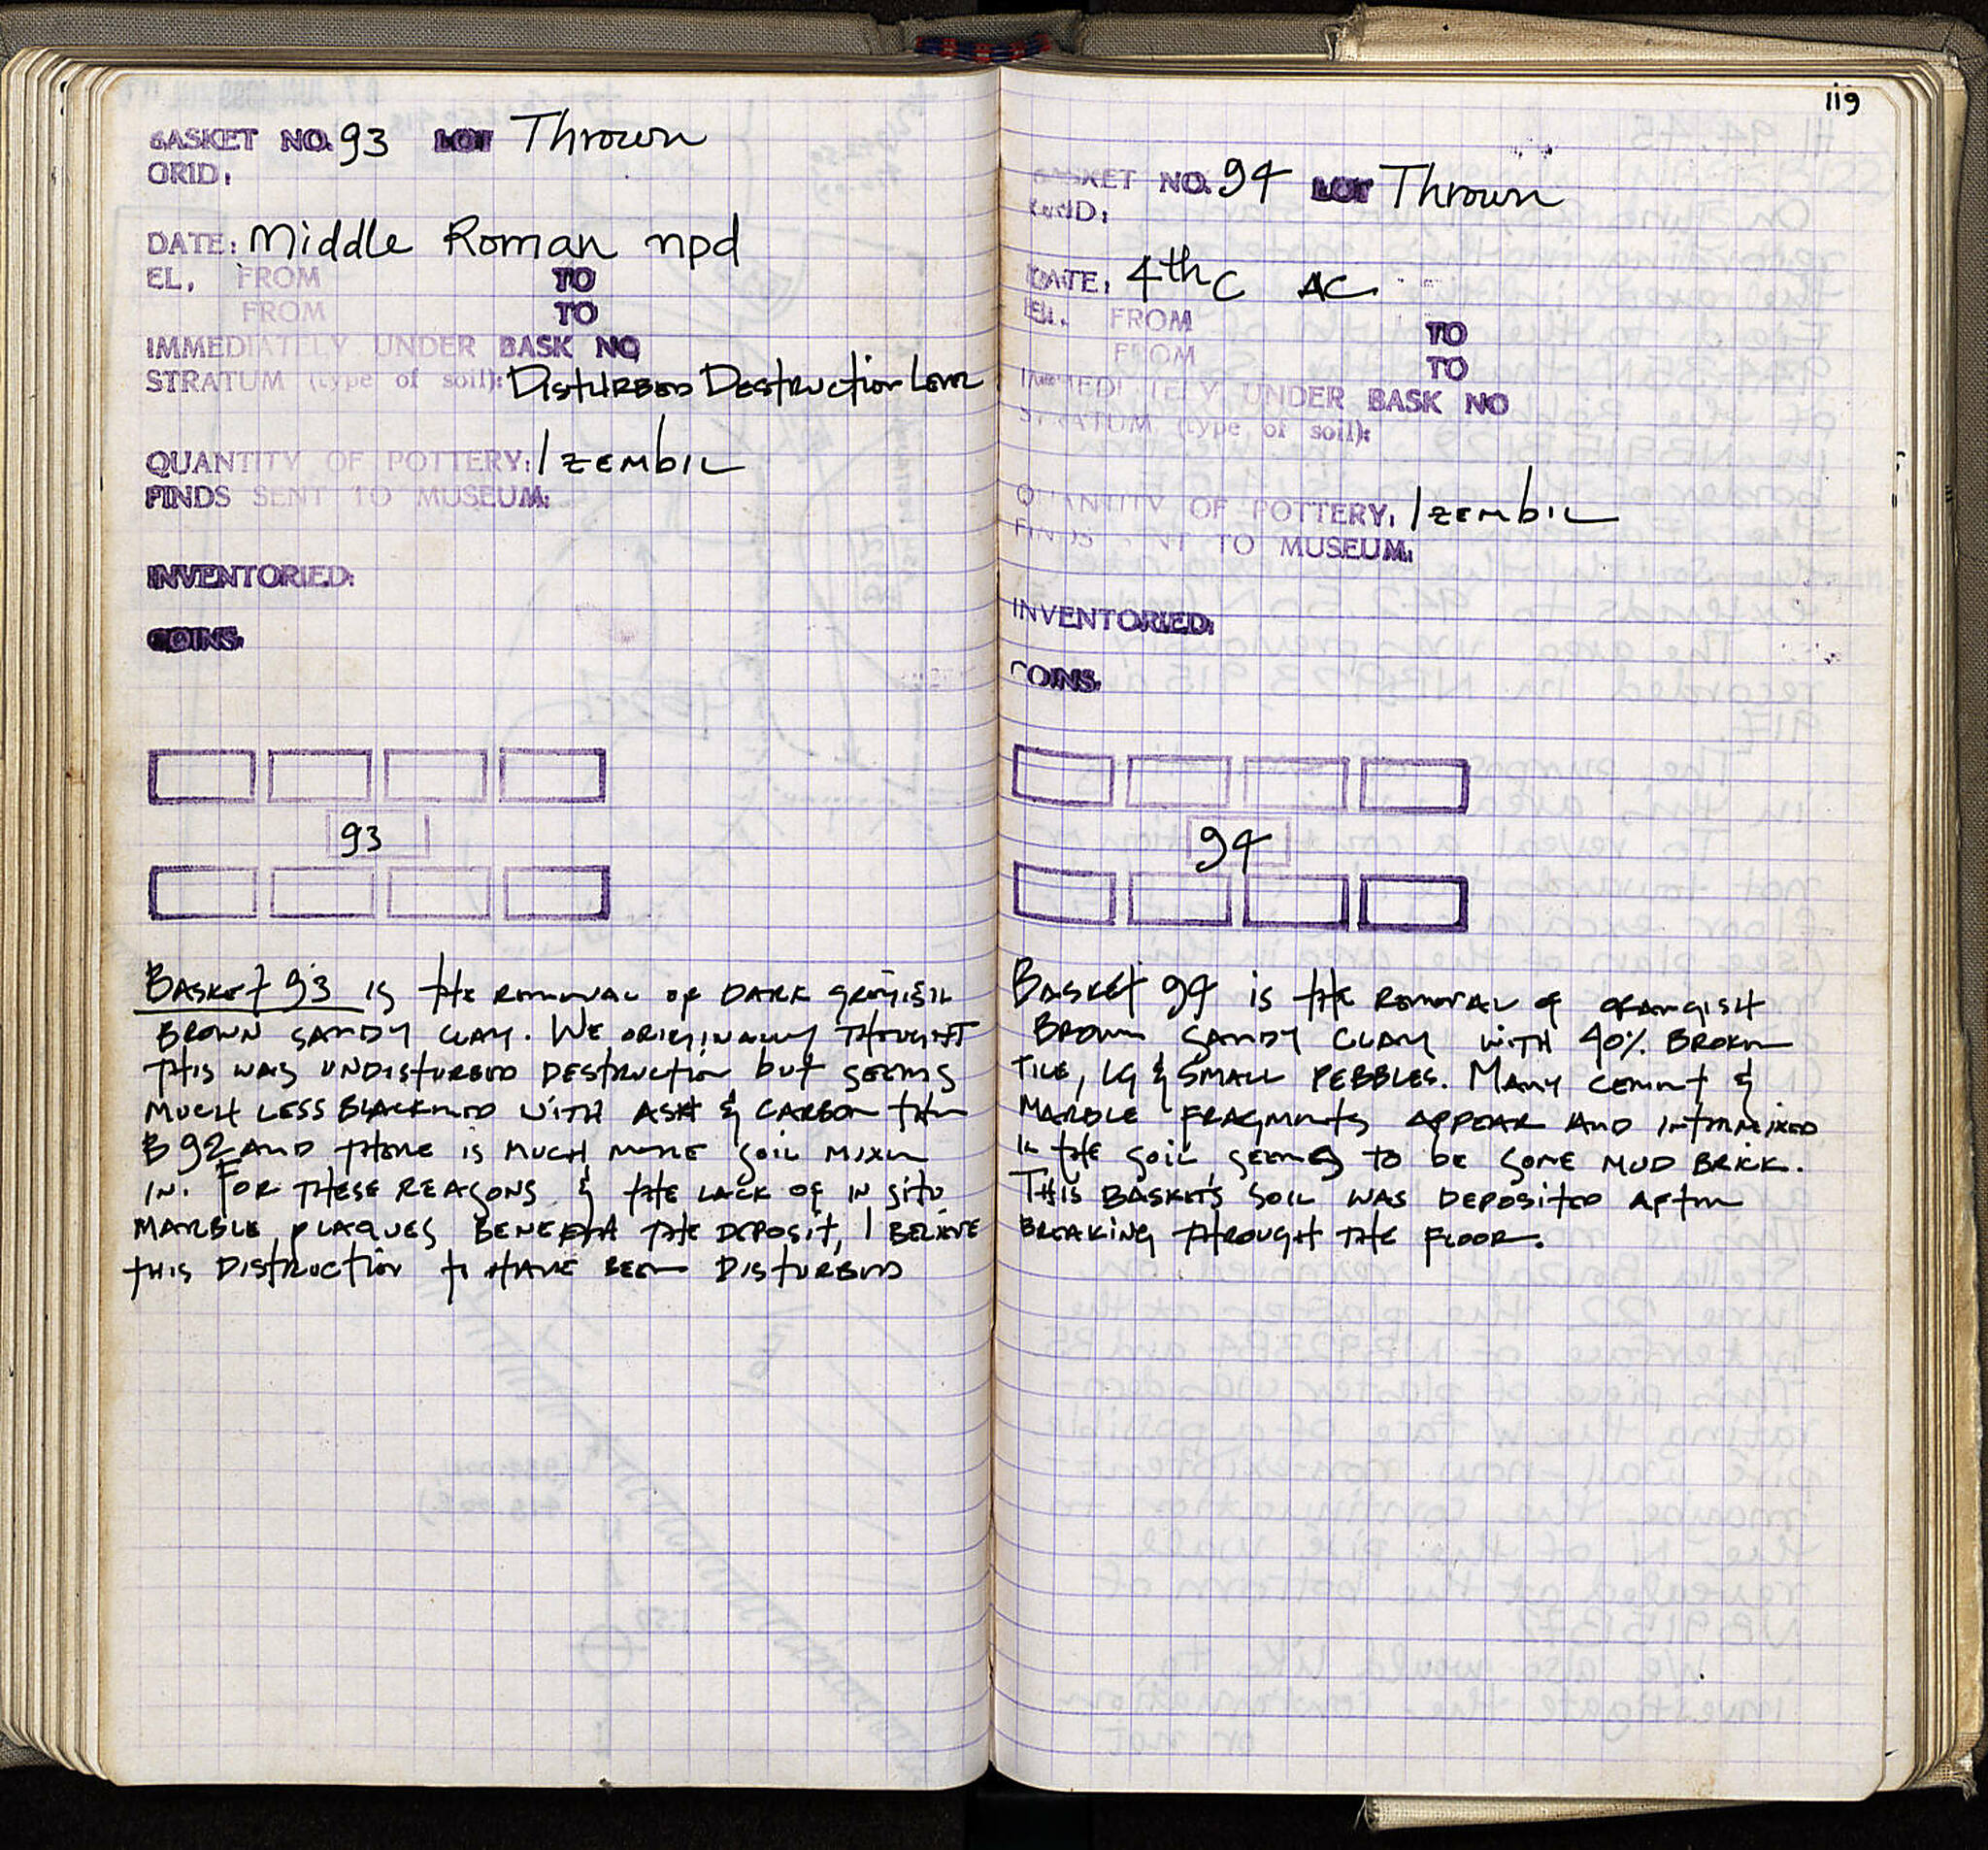 BASKET NO. 93 LOT Thrown
GRID:
DATE: Middle Roman npd
EL. FROM TO
FROM TO
IMMEDIATELY UNDER BASK NO
STRATUM (type of soil): DISTURBED DESTRUCTION LEVEL
QUANTITY OF POTTERY: 1 ZEMBIL
FINDS SENT TO MUSEUM:
INVENTORIED:
COINS:
93
BASKET 93 IS THE REMOVAL OF DARK GREYISH
BROWN SANDY CLAY. WE ORIGINALLY THOUGHT
THIS WAS UNDISTURBED DESTRUCTION but SEEMS
MUCH LESS BLACKENED WITH ASH & CARBON THAN
B 92 AND THERE IS MUCH MORE SOIL MIXED
IN. FOR THESE REASONS & THE LACK OF IN SITU
MARBLE PLAQUES BENEATH THE DEPOSIT, I BELIEVE
THIS DISTRUCTION to HAVE BEEN DISTURBED
119
BASKET NO. 94 LOT Thrown
GRID:
DATE: 4th C AC
EL. FROM TO
FROM TO
IMMEDIATELY UNDER BASK NO
STRATUM (type of soil):
QUANTITY OF POTTERY: 1 ZEMBIL
FINDS SENT TO MUSEUM:
INVENTORIED:
COINS:
94
BASKET 94 IS THE REMOVAL OF ORANGISH
BROWN SANDY CLAY WITH 40% BROKEN
TILE, LG & SMALL PEBBLES. MANY CEMENT &
MARBLE FRAGMENTS APPEAR AND INTERMIXED
IN THE SOIL SEEMS TO BE SOME MUD BRICK.
THIS BASKET'S SOIL WAS DEPOSITED AFTER
BREAKING THROUGH THE FLOOR.